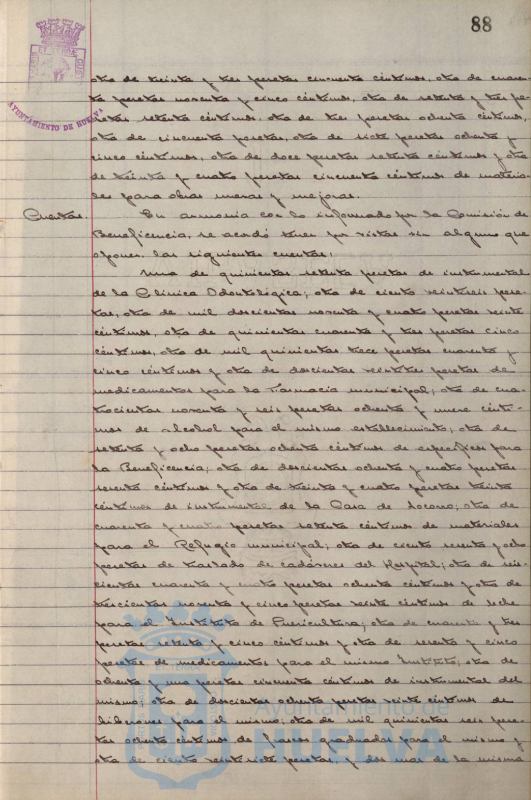 88
AYUNTAMIENTO DE HUELVA
otra de treinta y tres pesetas cincuenta céntimos, otra de cuaren-
ta pesetas noventa y cinco céntimos, otra de setenta y tres pe-
setas setenta céntimos, otra de tres pesetas ochenta céntimos,
otra de cincuenta pesetas, otra de siete pesetas ochenta y
cinco céntimos, otra de doce pesetas setenta céntimos y otra
de treinta y cuatro pesetas cincuenta céntimos de materia-
les para obras nuevas y mejoras.
Cuentas. En armonía con lo informado por la Comisión de
Beneficencia, se acordó tener por vistas sin alguno que
oponer, las siguientes cuentas:
Una de quinientas setenta pesetas de instrumental
de la Clínica Odontológica; otra de ciento veintiseis pese-
tas, otra de mil doscientas noventa y cuatro pesetas veinte
céntimos, otra de quinientas cuarenta y tres pesetas cinco
céntimos, otra de mil quinientas trece pesetas cuarenta y
cinco céntimos y otra de doscientas veintitres pesetas de
medicamentos para la Farmacia municipal; otra de cua-
trocientas noventa y seis pesetas ochenta y nueve cénti-
mos de alcohol para el mismo establecimiento; otra de
setenta y ocho pesetas ochenta céntimos de específicos para
la Beneficencia; otra de doscientas ochenta y cuatro pesetas
sesenta céntimos y otra de treinta y cuatro pesetas treinta
céntimos de instrumental de la Casa de Socorro; otra de
cuarenta y cuatro pesetas setenta céntimos de materiales
para el Refugio municipal; otra de ciento sesenta y ocho
pesetas de traslado de cadáveres del Hospital; otra de seis-
cientas cuarenta y cuatro pesetas ochenta céntimos y otra de
trescientas noventa y cinco pesetas veinte céntimos de leche
para el Instituto de Puericultura; otra de cuarenta y tres
pesetas setenta y cinco céntimos y otra de sesenta y cinco
pesetas de medicamentos para el mismo Instituto; otra de
ochenta y una pesetas cincuenta céntimos de instrumental del
mismo; otra de doscientas ochenta pesetas veinte céntimos de
biberones para el mismo; otra de mil quinientas seis pese-
tas ochenta céntimos de frascos graduados para el mismo y
otra de ciento veintisiete pesetas, y dos mas de la misma
Ayuntamiento de
HUELVA